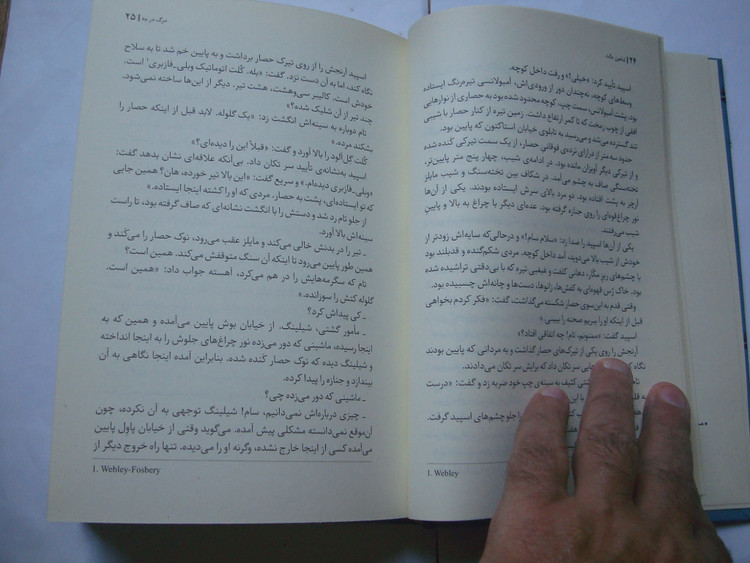 ۲۴ | زمین
اسپید تأیید کرد: «خیلی!» و رفت داخل کوچه.
وسط‌های کوچه، نه‌چندان دور از ورودی‌اش، آمبولانسی تیره‌رنگ ایستاده
بود. پشت آمبولانس، سمت چپ، کوچه محدود شده بود به حصاری از نوارهایی
افقی از چوب زمخت که تا کمر ارتفاع داشت. زمین تیره از کنار حصار با شیبی
تند گسترده می‌شد و می‌رسید به تابلوی خیابان استاکتون که پایین بود.
حدود سه متر از درازای نرده‌ی فوقانی حصار، از یک سمت تیرکی کنده شده
و از تیرکی دیگر آویزان مانده بود. در ادامه‌ی شیب، چهار پنج متر پایین‌تر،
تخته‌سنگی صاف به چشم می‌آمد. در شکاف بین تخته‌سنگ و شیب مایلز
آرچر به پشت افتاده بود. دو مرد بالای سرش ایستاده بودند. یکی از آن‌ها
نور چراغ‌قوه‌ای را روی جنازه گرفته بود. عده‌ای دیگر با چراغ به بالا و پایین
شیب می‌رفتند.
یکی از آن‌ها اسپید را صدا زد: «سلام سام!» و درحالی‌که سایه‌اش زودتر از
خودش از شیب بالا می‌دوید، آمد داخل کوچه. مردی شکم‌گنده و قدبلند بود
با چشم‌های ریز مکار، دهانی کلفت و غبغبی تیره که با بی‌دقتی تراشیده شده
بود. خاک رُس قهوه‌ای به کفش‌ها، زانوها، دست‌ها و چانه‌اش چسبیده بود.
وقتی قدم به این‌سوی حصار شکسته می‌گذاشت، گفت: «فکر کردم بخواهی
قبل از اینکه او را ببریم صحنه را ببینی.»
اسپید گفت: «ممنونم، تام! چه اتفاقی افتاد؟»
آرنجش را روی یکی از تیرک‌های حصار گذاشت و به مردانی که پایین بودند
نگاه سر تکان داد که برایش سر تکان می‌دادند.
تام کثیف به سینه‌ی چپ خود ضربه زد و گفت: «درست
جلو چشم‌های اسپید گرفت.
1. Webley
مرگ در مه | ۲۵
اسپید آرنجش را از روی تیرک حصار برداشت و به پایین خم شد تا به سلاح
نگاه کند، اما به آن دست نزد. گفت: «بله. کُلت اتوماتیک وبلی‌ـ‌فازبری¹ است.
خودش است. کالیبر سی‌وهشت، هشت تیر. دیگر از این‌ها ساخته نمی‌شود.
چند تیر از آن شلیک شده؟»
تام دوباره به سینه‌اش انگشت زد: «یک گلوله. لابد قبل از اینکه حصار را
بشکند مرده.»
کُلت گِل‌آلود را بالا آورد و گفت: «قبلاً این را دیده‌ای؟»
اسپید به‌نشانه‌ی تأیید سر تکان داد. بی‌آنکه علاقه‌ای نشان بدهد گفت:
«وبلی‌ـ‌فازبری دیده‌ام.» و سریع گفت: «این بالا تیر خورده، هان؟ همین جایی
که تو ایستاده‌ای، پشت به حصار. مردی که او را کشته اینجا ایستاده.»
از جلو تام رد شد و دستش را با انگشت نشانه‌ای که صاف گرفته بود، تا راست
سینه‌اش بالا آورد.
ـ تیر را در بدنش خالی می‌کند و مایلز عقب می‌رود، نوک حصار را می‌کَند و
همین طور پایین می‌رود تا اینکه آن سنگ متوقفش می‌کند. همین است؟
تام که سگرمه‌هایش را در هم می‌کرد، آهسته جواب داد: «همین است.
گلوله کتش را سوزانده.»
ـ کی پیداش کرد؟
ـ مأمور گشتی، شیلینگ. از خیابان بوش پایین می‌آمده و همین که به
اینجا رسیده، ماشینی که دور می‌زده نور چراغ‌های جلوش را به اینجا انداخته
و شیلینگ دیده که نوک حصار کَنده شده. بنابراین آمده اینجا نگاهی به آن
بیندازد و جنازه را پیدا کرده.
ـ ماشینی که دور می‌زده چی؟
ـ چیزی درباره‌اش نمی‌دانیم، سام! شیلینگ توجهی به آن نکرده، چون
آن‌موقع نمی‌دانسته مشکلی پیش آمده. می‌گوید وقتی از خیابان پاول پایین
می‌آمده کسی از اینجا خارج نشده، وگرنه او را می‌دیده. تنها راه خروج دیگر از
1. Webley-Fosbery